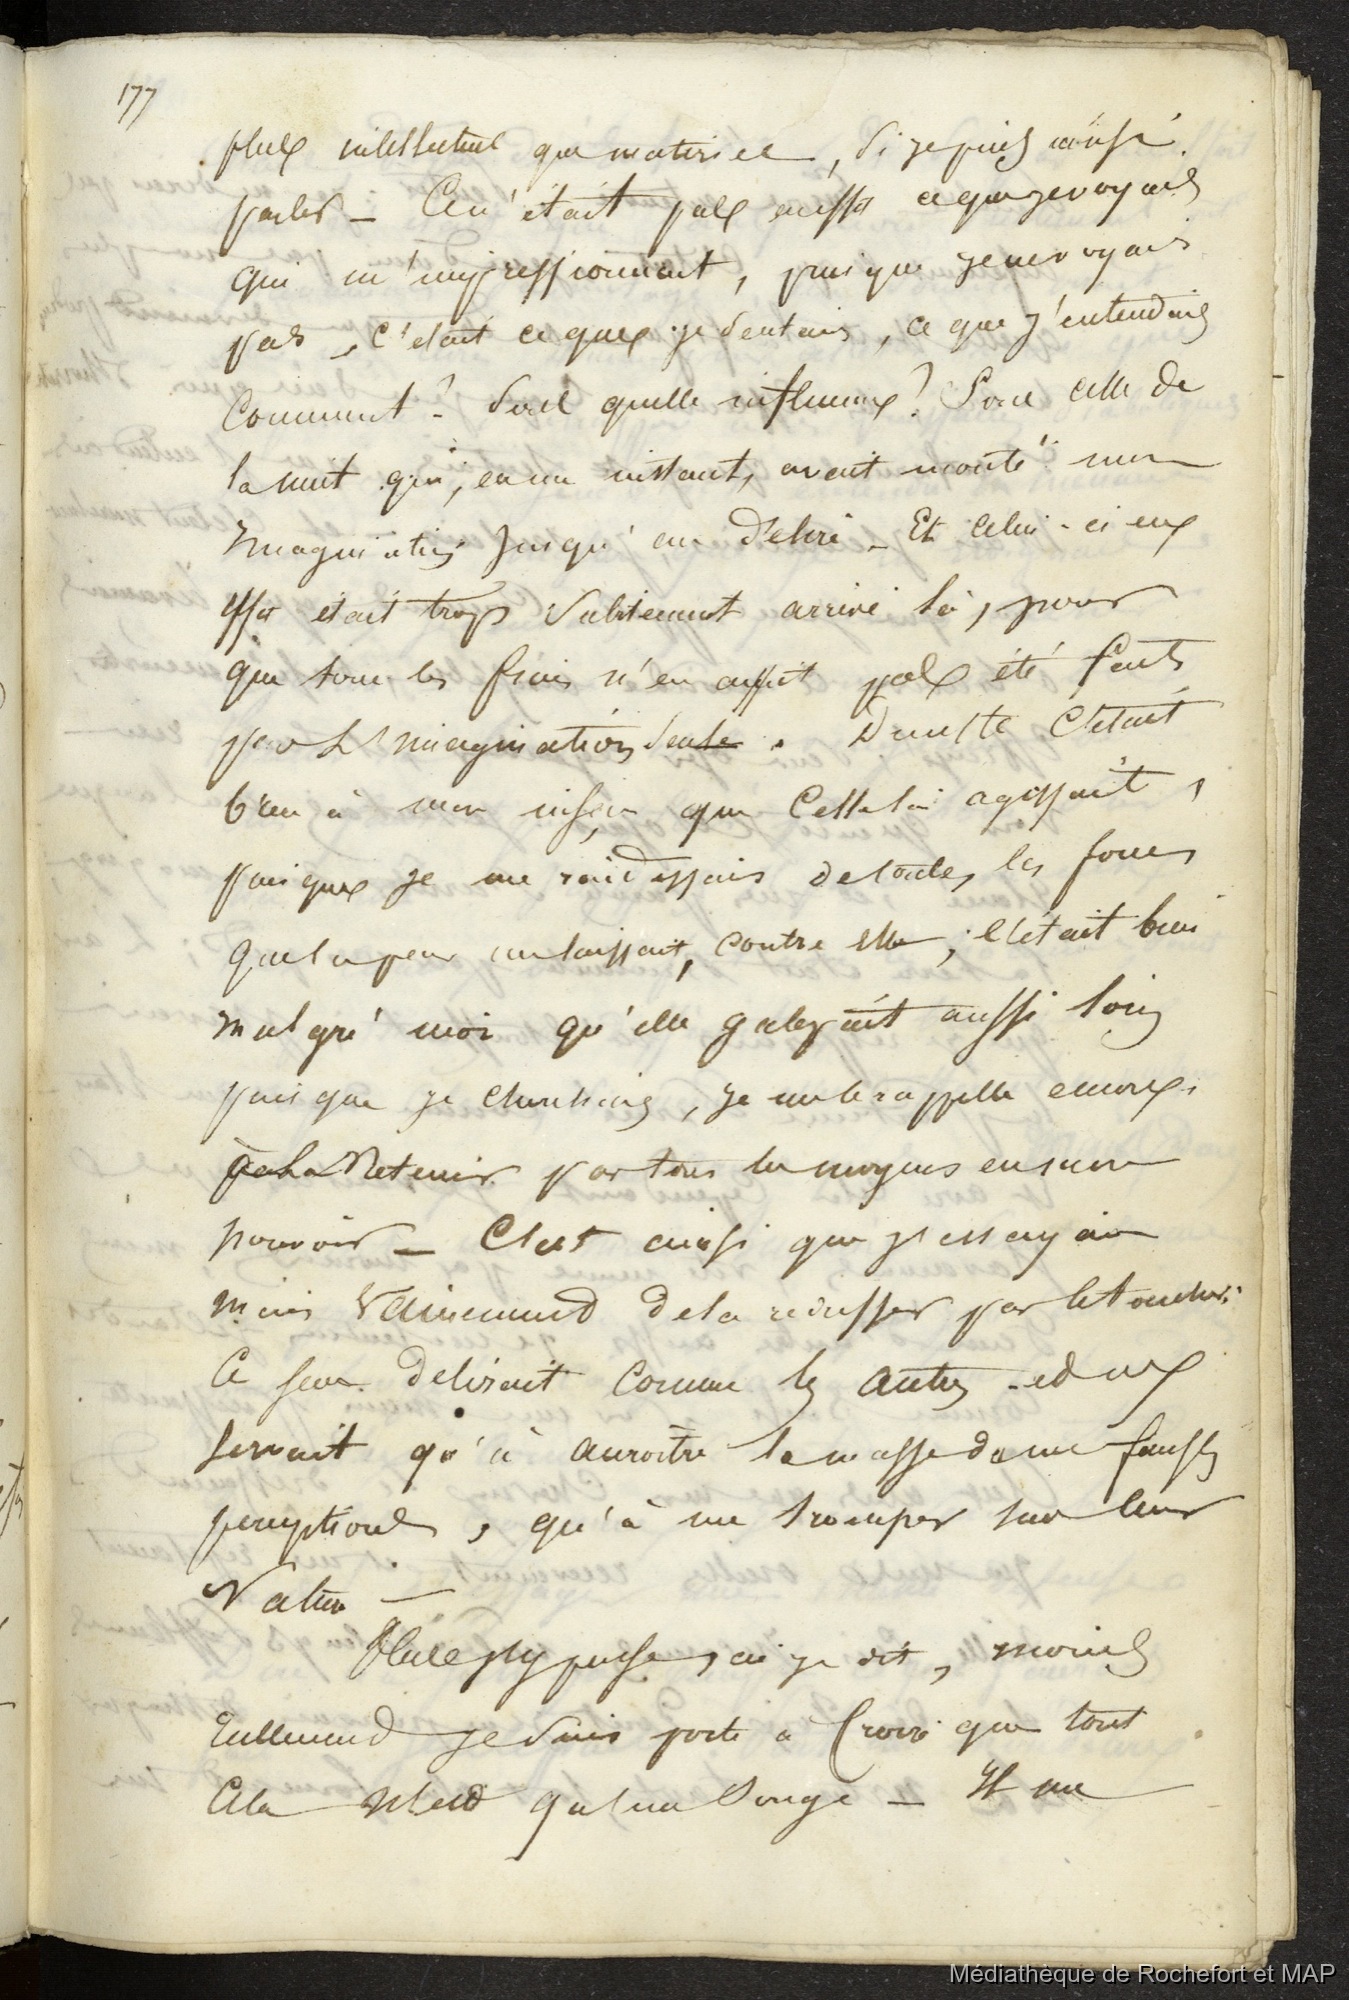 177
plus intellectuel que matériel, si je puis ainsi
parler _ Ce n'était pas aussi ce que je voyais
qui m'impressionnait, puisque je ne voyais
pas, c'était ce que je sentais, ce que j'entendais
Comment? Sous quelle influence? Sous celle de
la nuit qui, en un instant, avait monté mon
imagination jusqu'au délire _ Et celui-ci en
effet était trop subitement arrivé là, pour
que tous les frais n'en aient pas été faits
par l'imagination seule. Ensuite c'était
bien à mon insçu que celle-là agissait,
puisque je me raidissais de toutes les forces
que la peur me laissait, contre elle; c'était bien
malgré moi qu'elle galopait aussi loin
puisque je cherchais, je me le rappelle encore,
à la retenir par tous les moyens en mon
pouvoir _ C'est ainsi que j'essayais
mais vainement de la redresser par le toucher:
Ce sens délirait comme les autres et ne
servait qu'à accroître la masse de mes fausses
perceptions, qu'à me tromper sur leur
Nature _
Plus j'y pense, ai-je dit, moins
réellement je suis porté à croire que tout
cela n'était qu'un songe _ Il me
Médiathèque de Rochefort et MAP